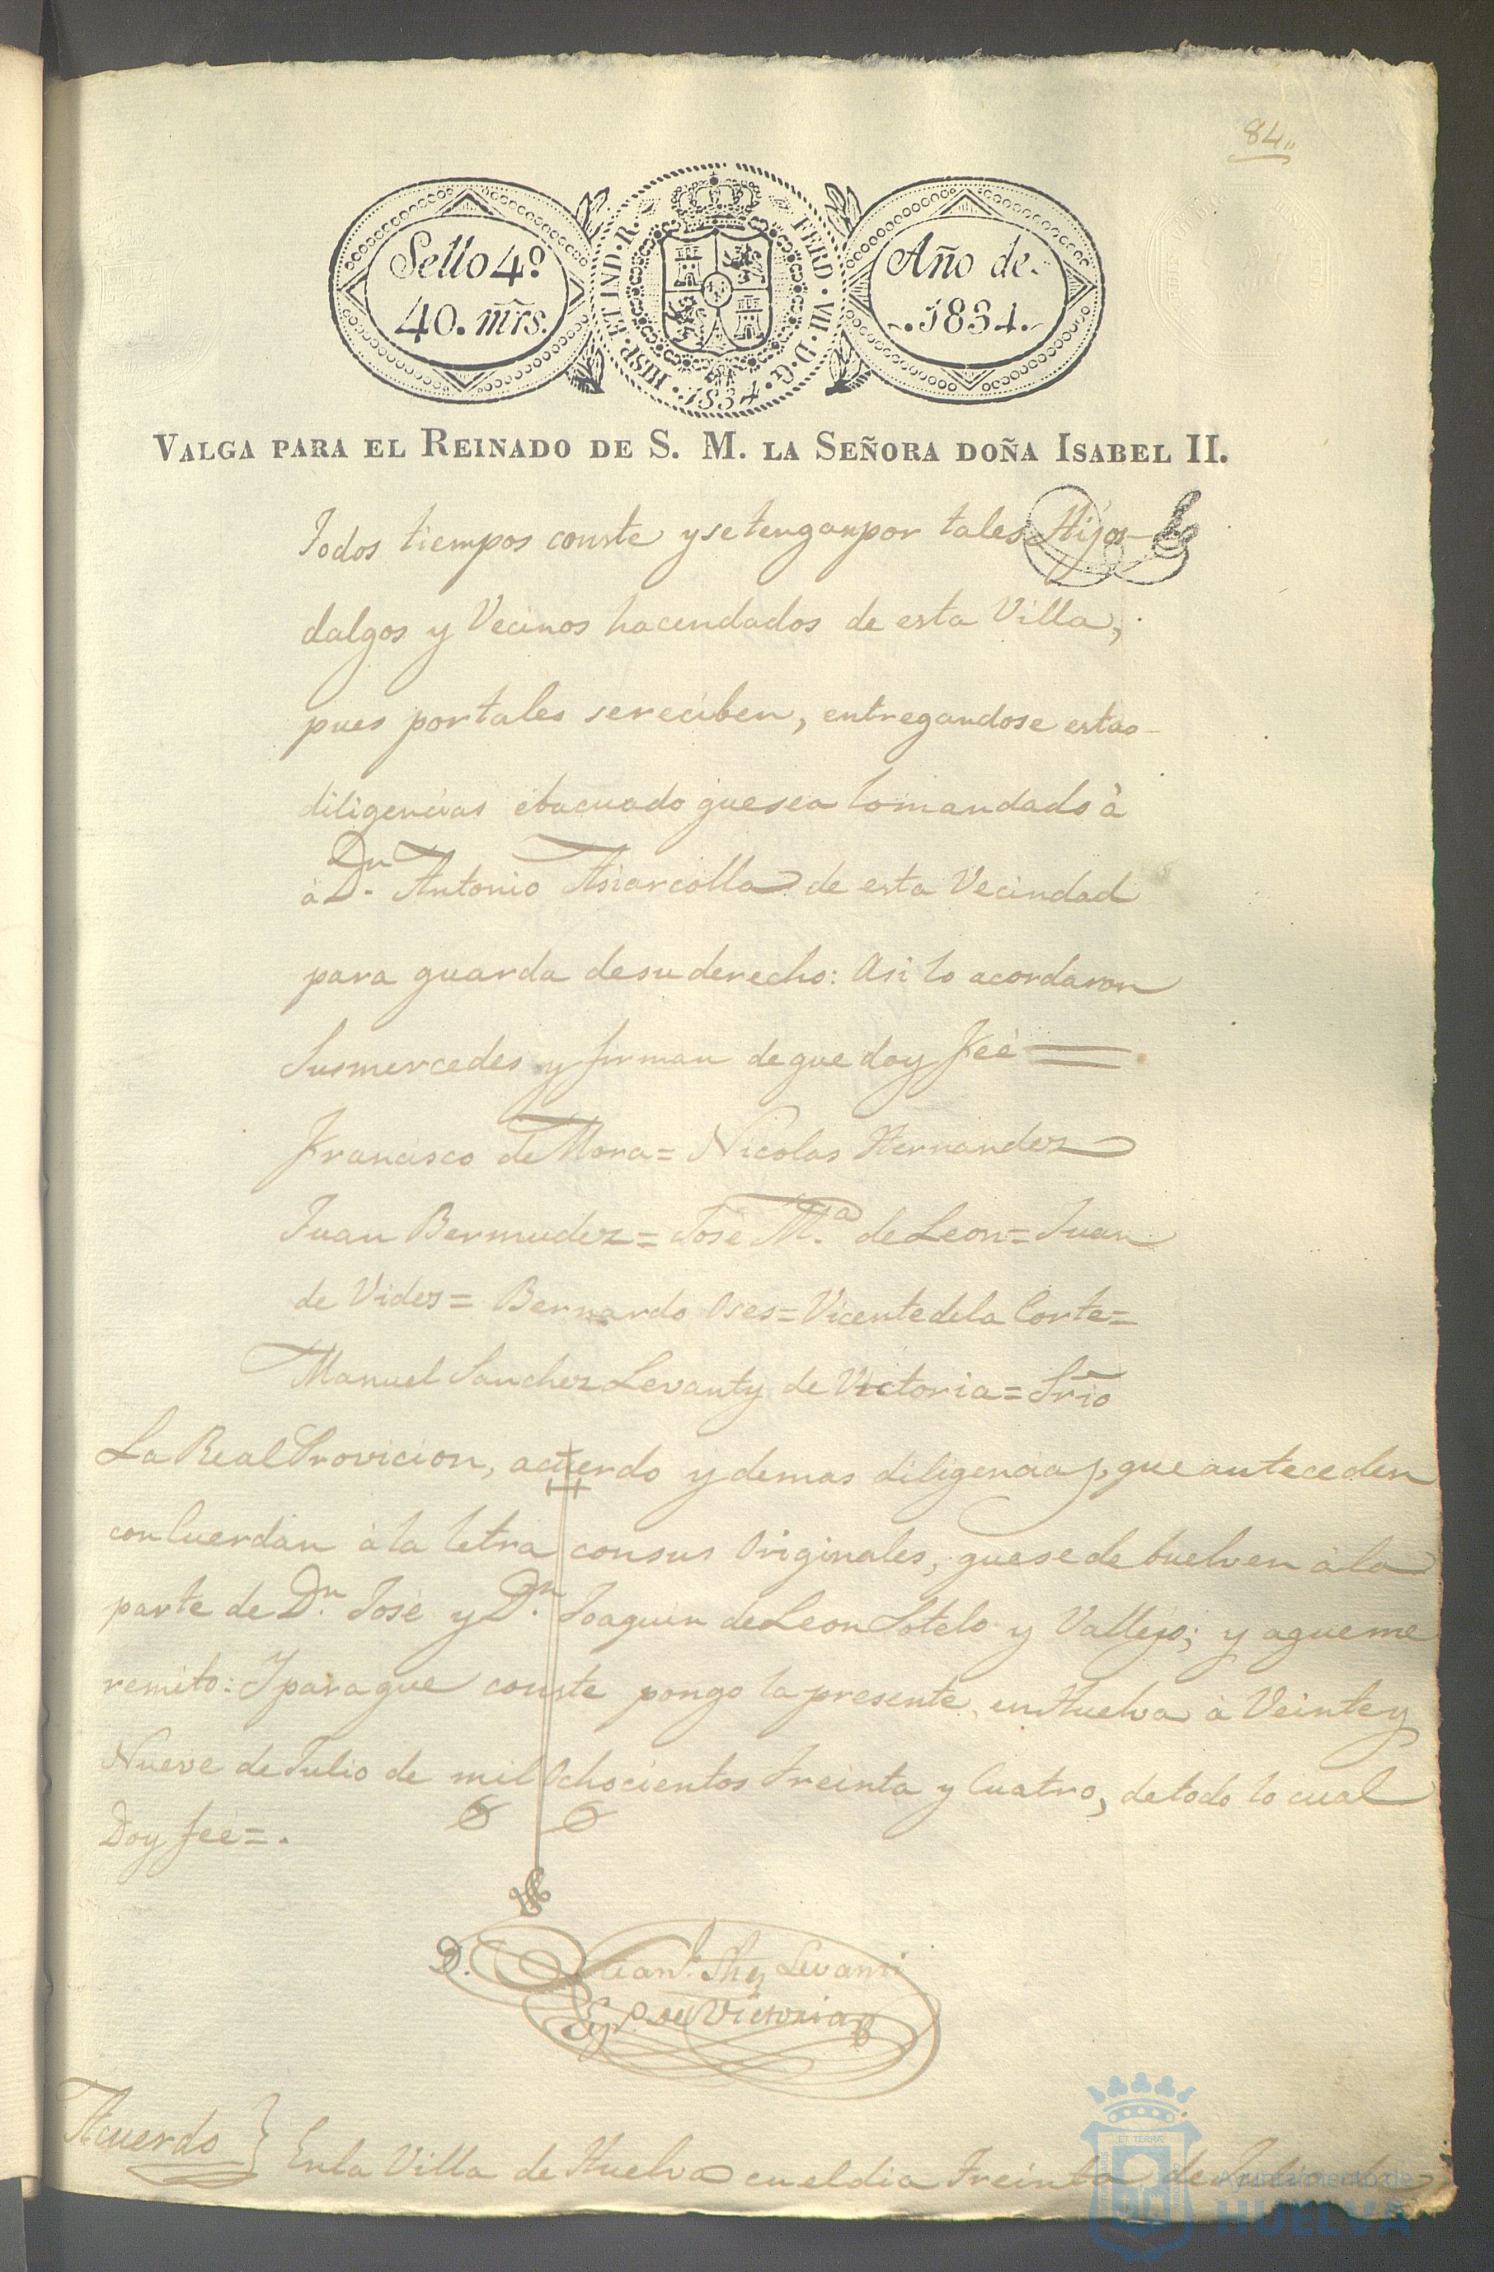 84,,
Sello 4.º
40. mrs.
HISP. ET IND. R.
FERD. VII. D. G.
1834.
Año de
1834.
VALGA PARA EL REINADO DE S. M. LA SEÑORA DOÑA ISABEL II.
Todos tiempos conste y se tengan por tales Hijos-
dalgos y Vecinos hacendados de esta Villa,
pues por tales se reciben, entregandose estas
diligencias ebacuado que sea lo mandado à
à Dn. Antonio de esta Vecindad
para guarda de su derecho: Asi lo acordaron
Sus mercedes y firman de que doy feé =
Francisco de Mora = Nicolas Hernandez
Juan Bermudez = José M.ª de Leon = Juan
de Vides = Bernardo Oses = Vicente de la Corte =
Manuel Sanchez Levanty de Victoria = Srio
La Real Provicion, acuerdo y demas diligencias, que anteceden
concuerdan à la letra con sus Originales, que se debuelven à la
parte de Dn. José y Dn. Joaquin de Leon Sotelo y Vallejo; y a que me
remito: Y para que conste pongo la presente en Huelva à Veinte y
Nueve de Julio de mil Ochocientos treinta y Cuatro, de todo lo cual
Doy feé =.
D.
Man.l Shz Levanti
de Victoria
Acuerdo } En la Villa de Huelva en el dia treinta de Julio de
ET TERRÆ
Ayuntamiento de
HUELVA